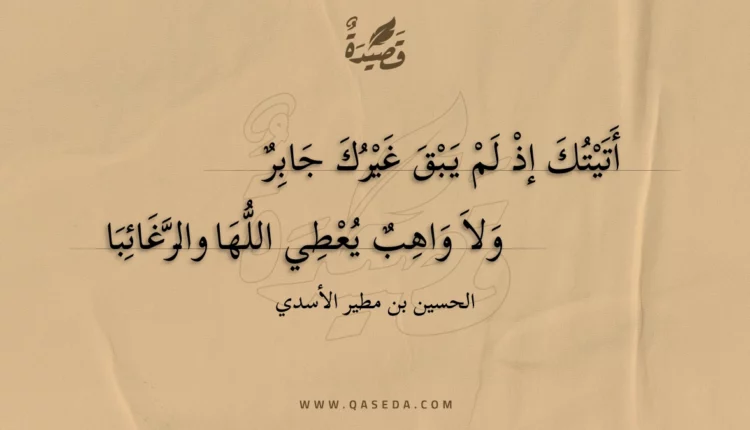 قَصِيْدَةٌ
أَتَيْتُكَ إِذْ لَمْ يَبْقَ غَيْرُكَ جَابِرٌ
وَلاَ وَاهِبٌ يُعْطِي اللُّهَا والرَّغَائِبَا
الحسين بن مطير الأسدي
WWW.QASEDA.COM